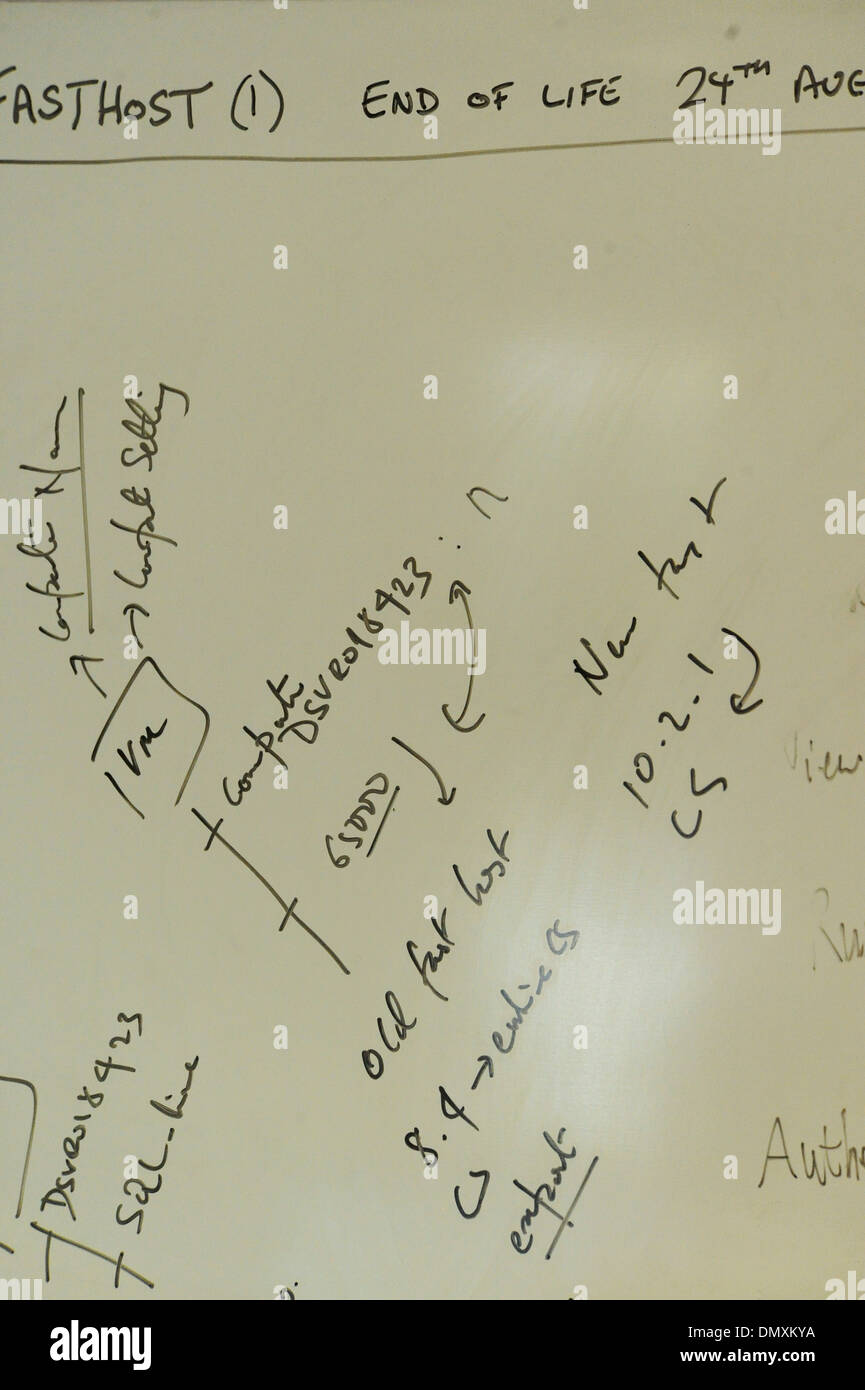 FASTHOST (1) END OF LIFE 24TH AUG
→ Compat Setting
1 Vm
Compati
DSVR018423 : ?
65000
New fast
10.2.1
CS
View
Old fast host
8.4 → entire CS
CS
export
DSVR018423
SQL-live
Autho
alamy
Image ID: DMXKYA
www.alamy.com